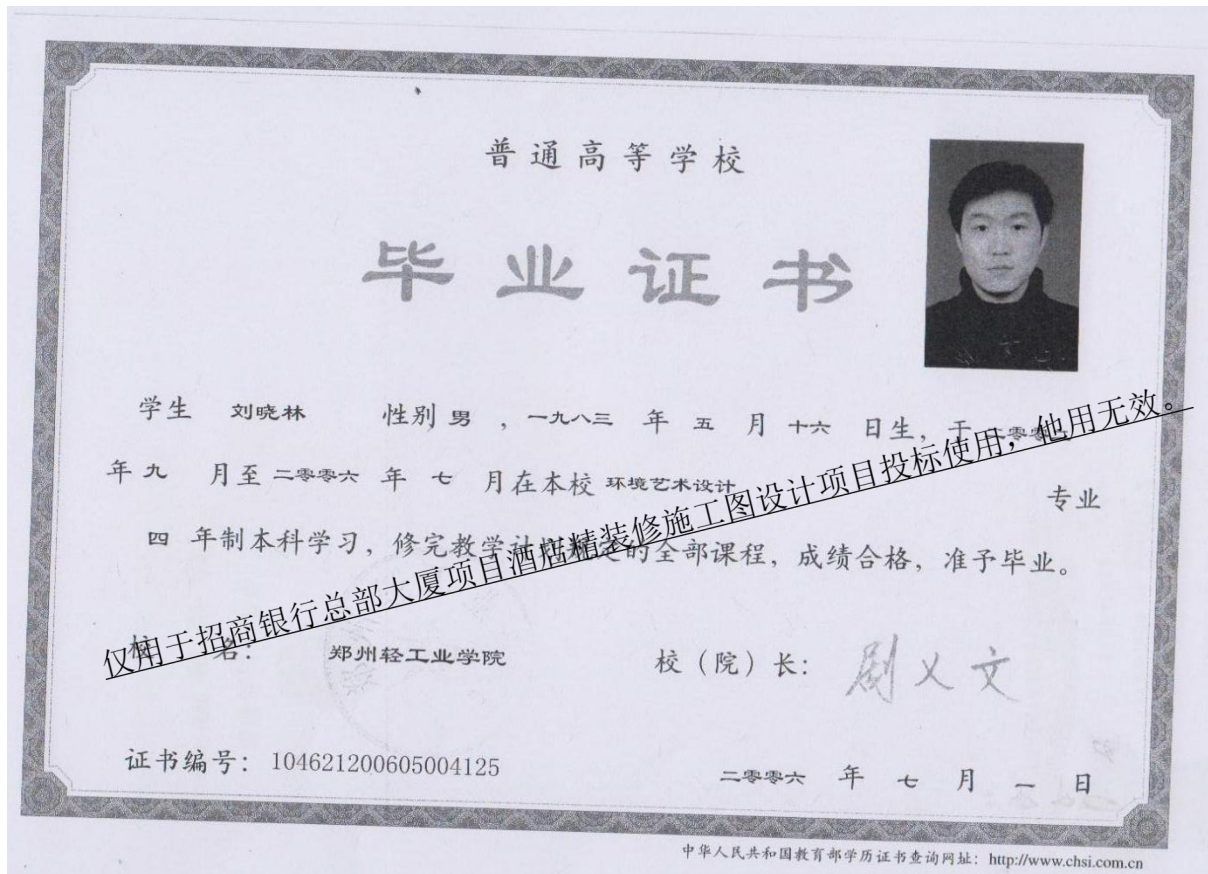 普通高等学校
毕业证书
学生 刘晓林 性别 男 ，一九八三 年 五 月 十六 日生，于
年 九 月至 二零零六 年 七 月在本校 环境艺术设计 专业
四 年制本科学习，修完教学 的全部课程，成绩合格，准予毕业。
仅用于招商银行总部大厦项目酒店精装修施工图设计项目投标使用，他用无效。
校 名： 郑州轻工业学院 校（院）长：
证书编号：104621200605004125 二零零六 年 七 月 一 日
中华人民共和国教育部学历证书查询网址：http://www.chsi.com.cn